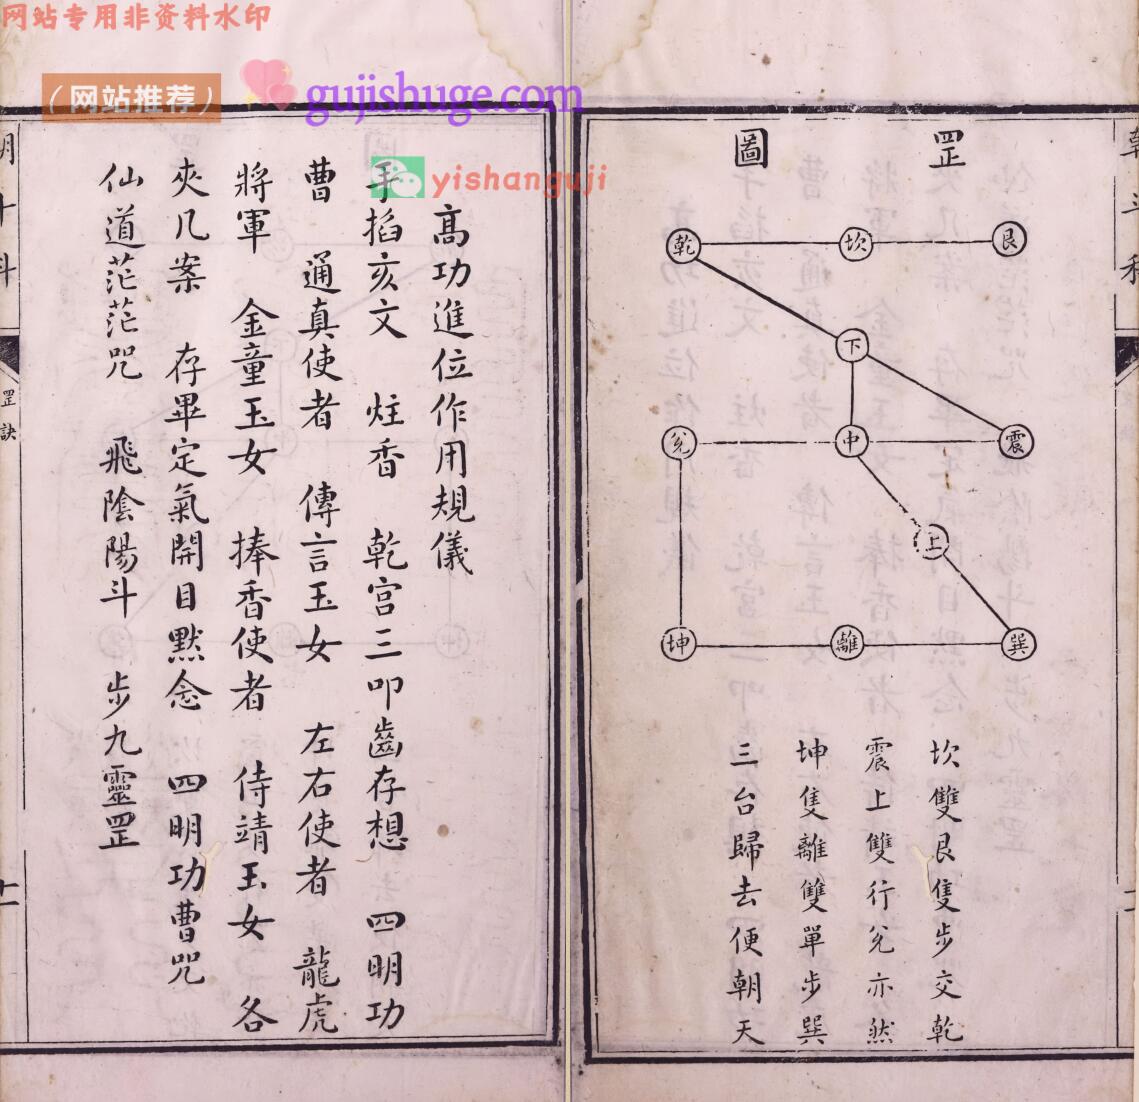 网站专用非资料水印
（网站推荐）
gujishuge.com
yishanguji
罡
圖
艮 坎 乾
下
震 中 兊
上
巽 離 坤
坎雙艮隻步交乾
震上雙行兊亦然
坤隻離雙單步巽
三台歸去便朝天
高功進位作用規儀
手掐亥文 炷香 乾宫三叩齒存想 四明功
曹 通真使者 傳言玉女 左右使者 龍虎
將軍 金童玉女 捧香使者 侍靖玉女 各
夾几案 存畢定氣開目黙念 四明功曹咒
仙道茫茫咒 飛陰陽斗 步九靈罡
罡訣